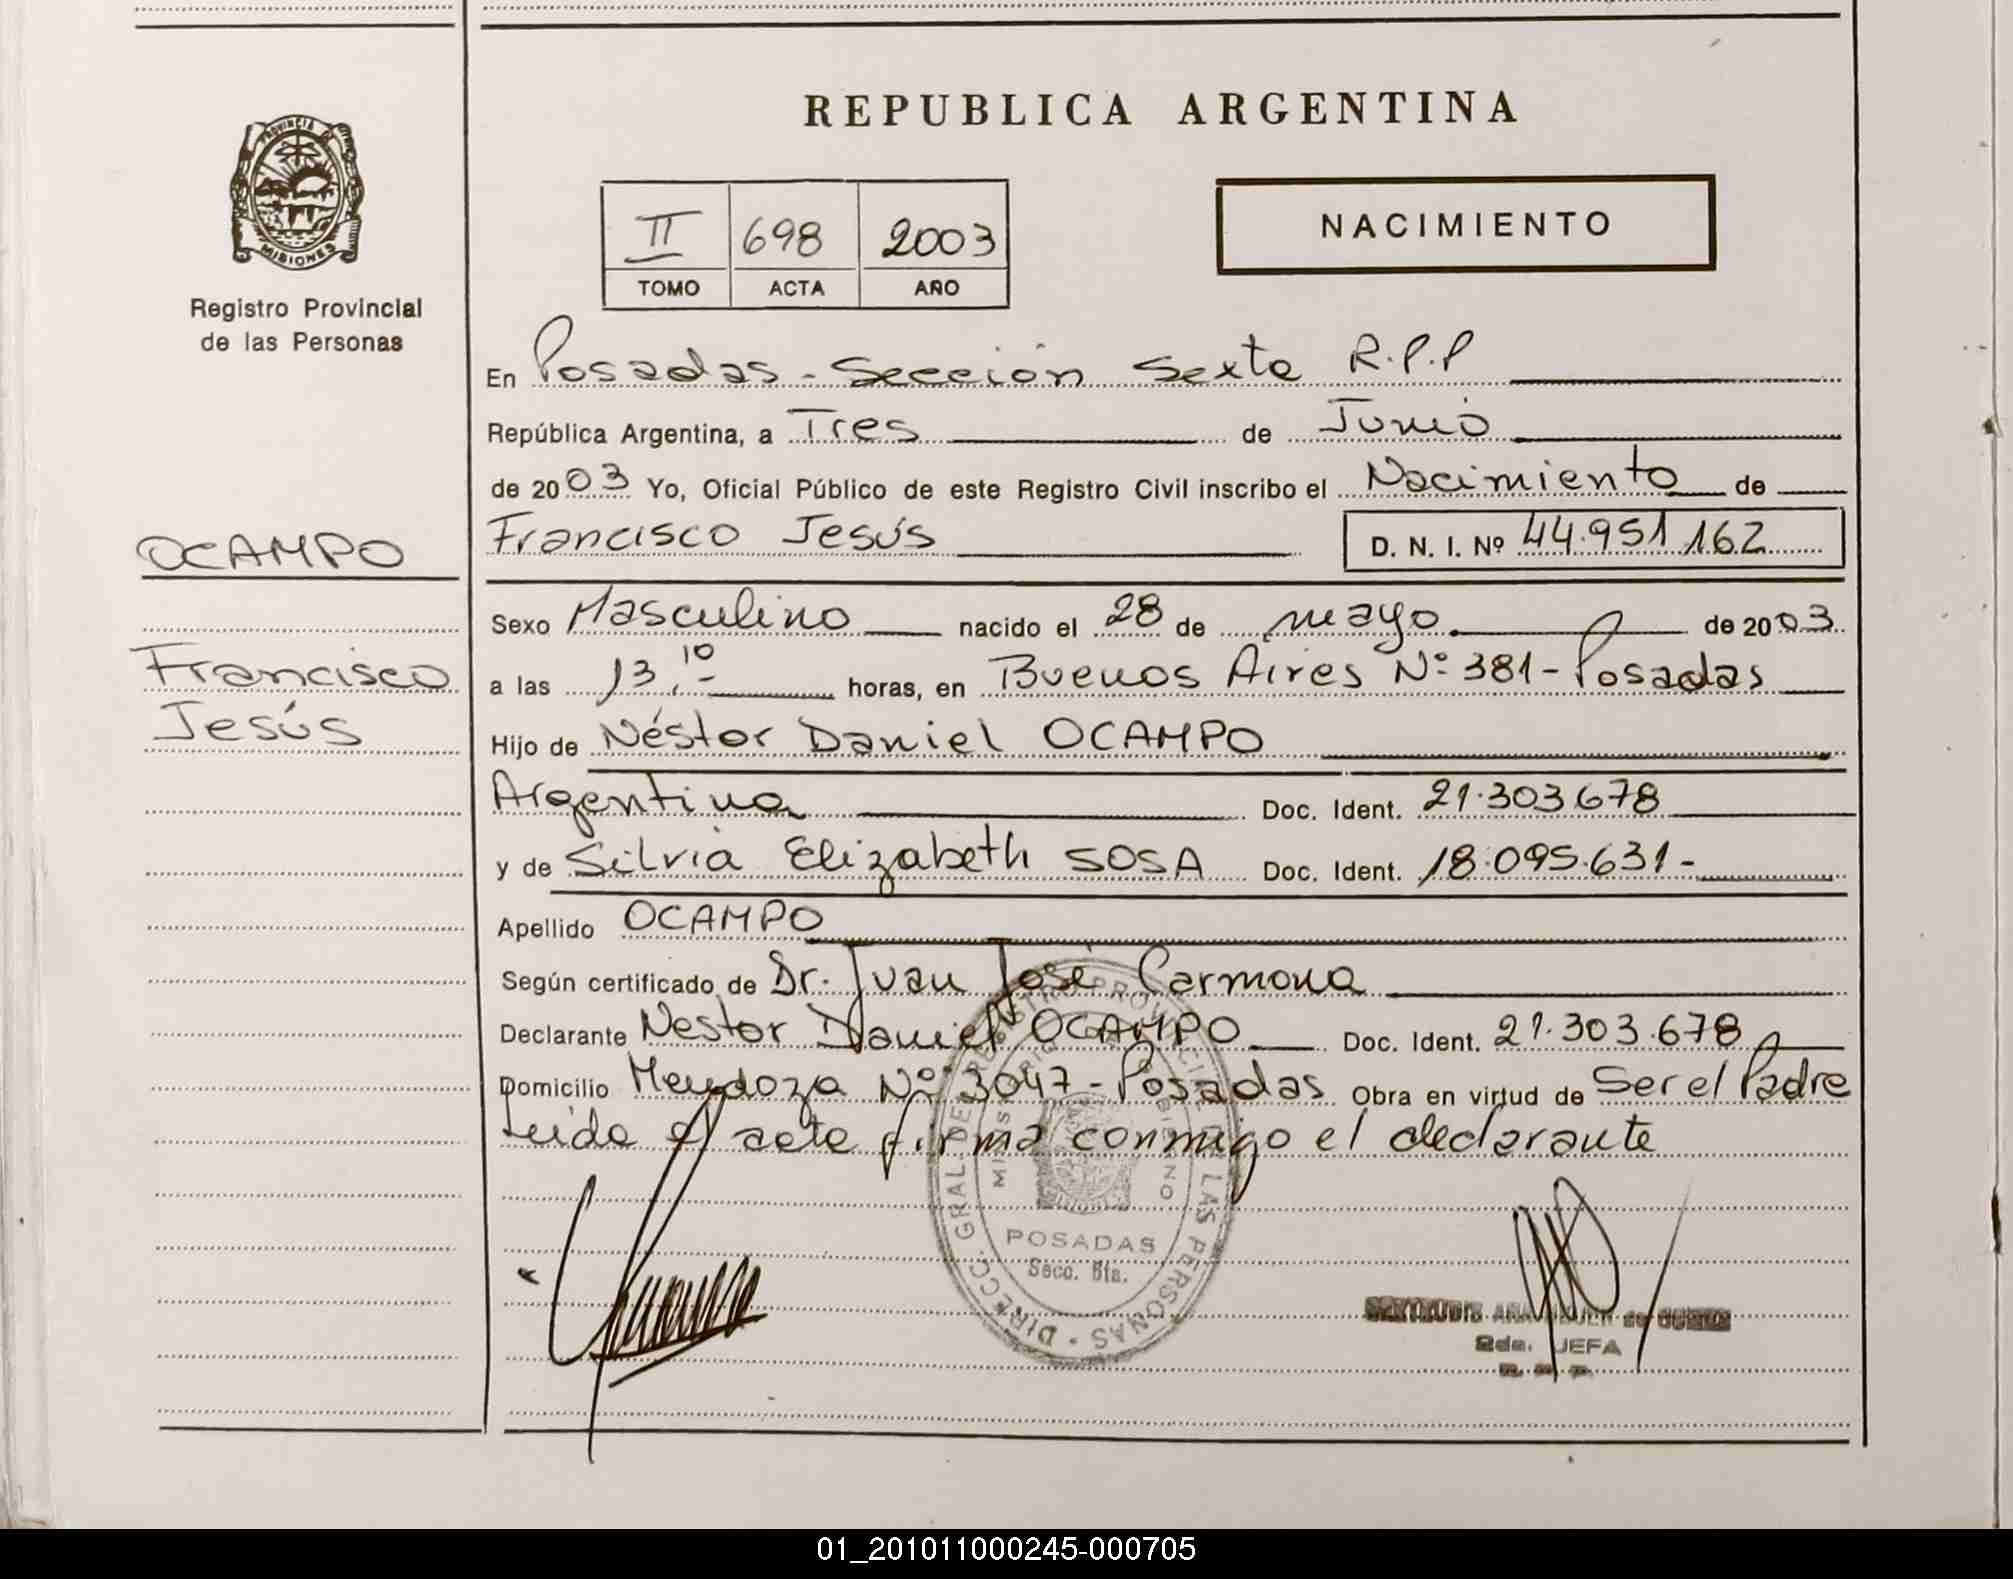 REPUBLICA ARGENTINA
PROVINCIA DE
MISIONES
Registro Provincial
de las Personas
II 698 2003
TOMO ACTA AÑO
NACIMIENTO
En Posadas - Sección Sexta R.P.P
República Argentina, a Tres de Junio
de 2003 Yo, Oficial Público de este Registro Civil inscribo el Nacimiento de
Francisco Jesús D. N. I. Nº 44.951.162
OCAMPO
Francisco
Jesús
Sexo Masculino nacido el 28 de mayo de 2003
a las 13,10 horas, en Buenos Aires Nº 381 - Posadas
Hijo de Néstor Daniel OCAMPO
Argentina Doc. Ident. 21.303.678
y de Silvia Elizabeth SOSA Doc. Ident. 18.095.631-
Apellido OCAMPO
Según certificado de Dr. Juan José Carmona
Declarante Nestor Daniel OCAMPO Doc. Ident. 21.303.678
Domicilio Mendoza Nº 3047 - Posadas Obra en virtud de Ser el Padre
Leida el acta firma conmigo el declarante
DIRECC. GRAL. DE REGISTRO PROVINCIAL DE LAS PERSONAS
POSADAS
Secc. 6ta.
2da. JEFA
01_201011000245-000705